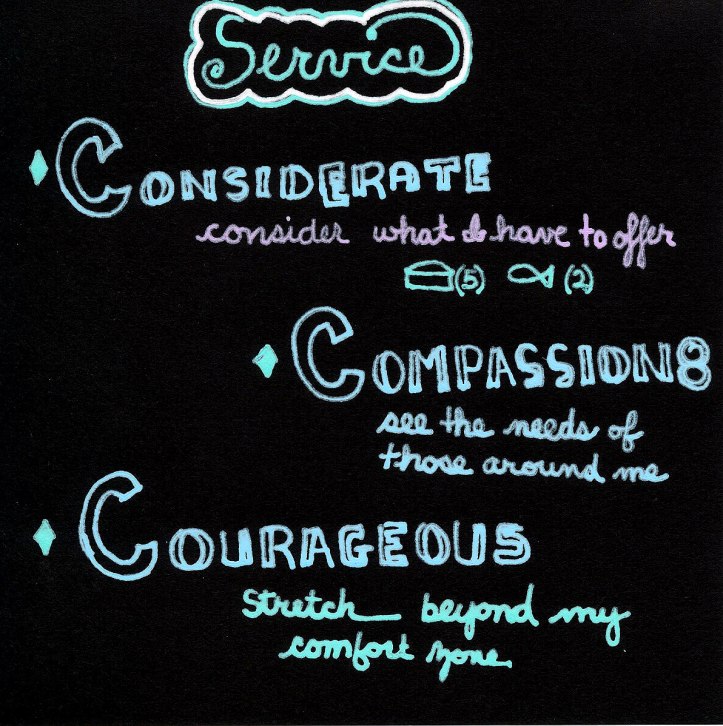 Service
CONSIDERATE
consider what I have to offer
(5) (2)
COMPASSION8
see the needs of
those around me
COURAGEOUS
Stretch beyond my
comfort zone.